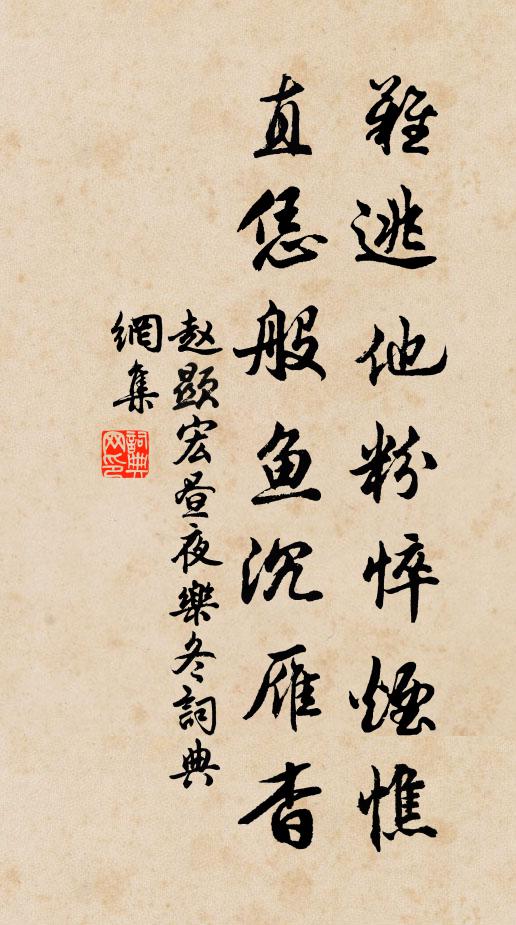 難逃他粉悴煙憔
直恁般魚沉雁杳
赵顯宏晝夜樂冬詞典
網集
詞典
网印